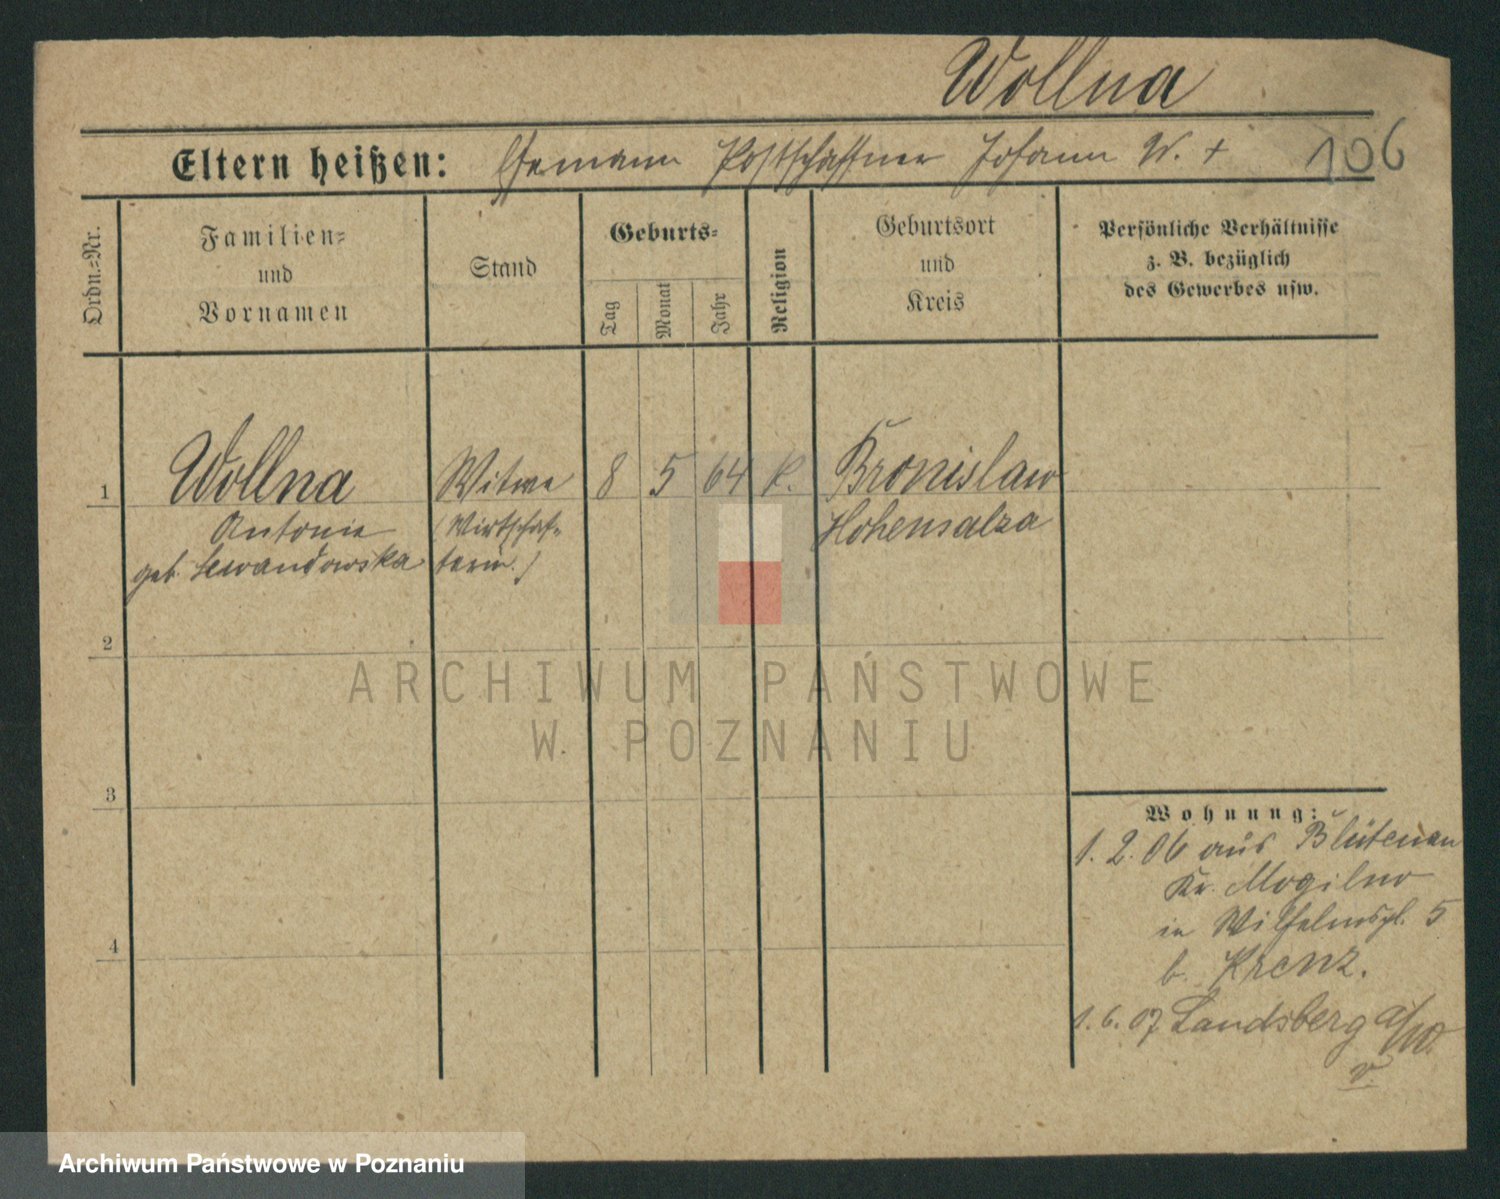 Wollna
Eltern heißen: Ehemann Postschaffner Johann W. + 106
Ordn.=Nr.
Familien=
und
Vornamen
Stand
Geburts=
Tag
Monat
Jahr
Religion
Geburtsort
und
Kreis
Persönliche Verhältnisse
z. B. bezüglich
des Gewerbes usw.
1 Wollna Witwe 8 5 64 k. Bronislaw
Antonie (Wirtschaf=
Hohensalza
geb. Lewandowska terin.)
2
3
4
Wohnung:
1. 2. 06 aus Blütenau
Kr. Mogilno
in Wilhelmspl. 5
b. Krenz.
1. 6. 07 Landsberg a/W.
v.
ARCHIWUM PAŃSTWOWE
W POZNANIU
Archiwum Państwowe w Poznaniu